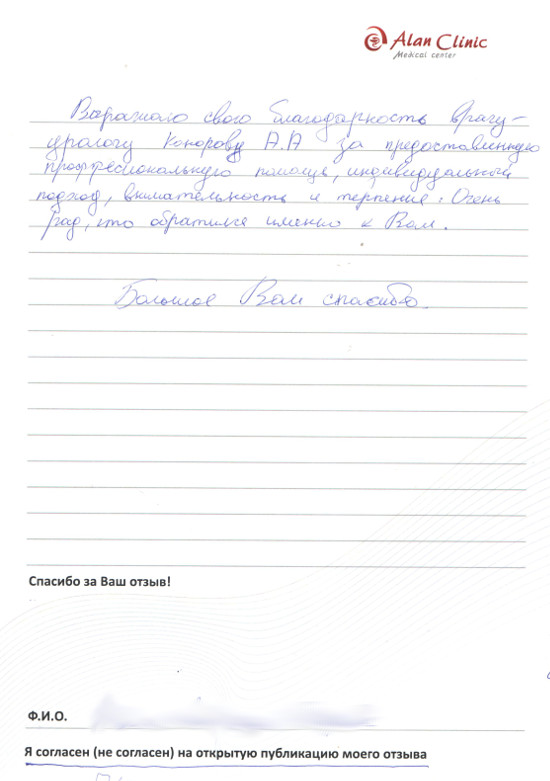 Alan Clinic
Medical center
Выражаю свою благодарность врачу-
урологу Конорову А.А за предоставленную
профессиональную помощь, индивидуальный
подход, внимательность и терпение. Очень
рад, что обратился именно к Вам.
Большое Вам спасибо
Спасибо за Ваш отзыв!
Ф.И.О.
Я согласен (не согласен) на открытую публикацию моего отзыва